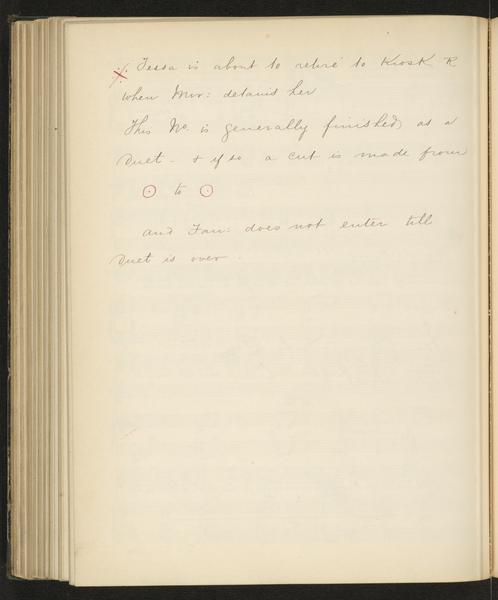 Tessa is about to retire to Kiosk R
when Mor: detains her
This No. is generally finished, as a
Duet - & if so a cut is made from
⊙ to ⊙
and Fan: does not enter till
Duet is over.